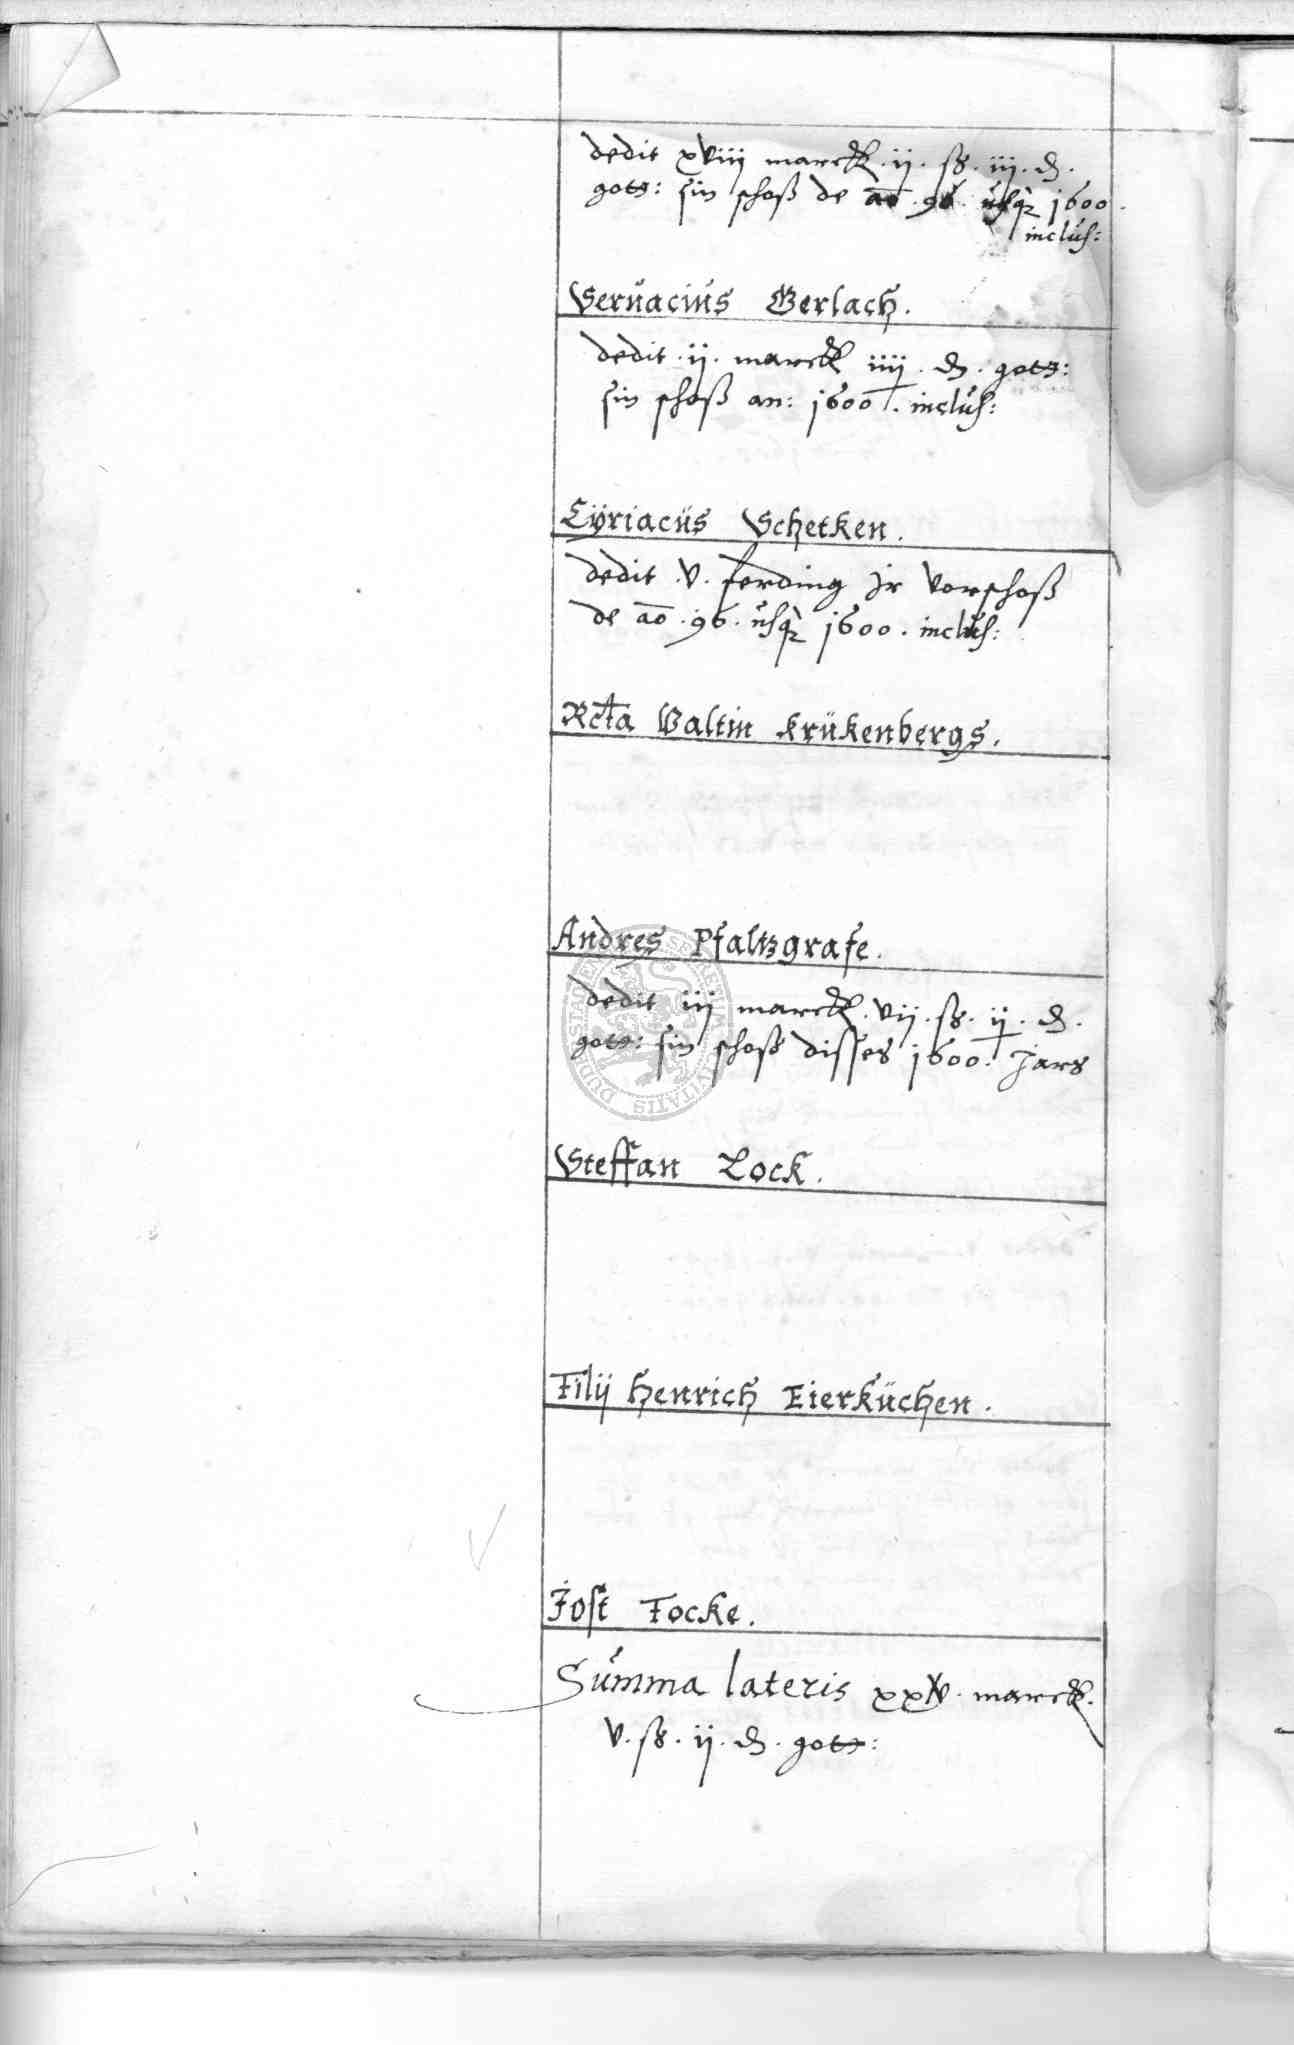 dedit xviij marck . ij . ß . iij . d .
gotg: sin schoß de ao . 96 . usq 1600 .
inclus:
Seruacius Gerlach .
dedit . ij . marck iiij . d . gotg:
sin schoß an: 1600 . inclus:
Cyriacus Schetken .
dedit . v . ferding Ir vorschoß
de ao . 96 . usq 1600 . inclus:
Rcta Valtin Krükenbergs .
Andres Pfaltzgrafe .
dedit iij marck . vij . ß . ij . d .
gotg: sin schoß disses 1600 . Jars
Steffan Lock .
Filij Henrich Eierküchen .
Jost Focke .
Summa lateris xxiv . marck .
v . ß . ij . d . gotg: